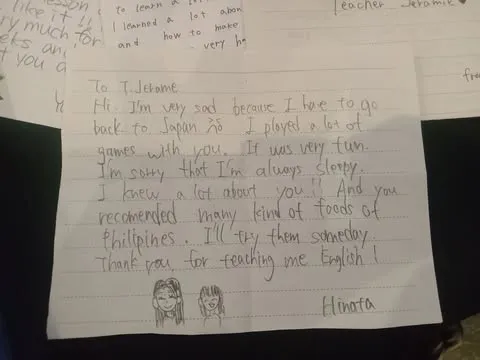 lesson
like it !!
ry much for
eks an
t you a
to learn a lo
I learned a lot abou
and how to make
very ha
Teacher Jeramie
fro
To T.Jerome
Hi. I'm very sad because I have to go
back to Japan I played a lot of
games with you. It was very fun.
I'm sorry that I'm always sleepy.
I knew a lot about you!! And you
recomended many kind of foods of
Philipines. I'll try them someday.
Thank you for teaching me English!
Hinata